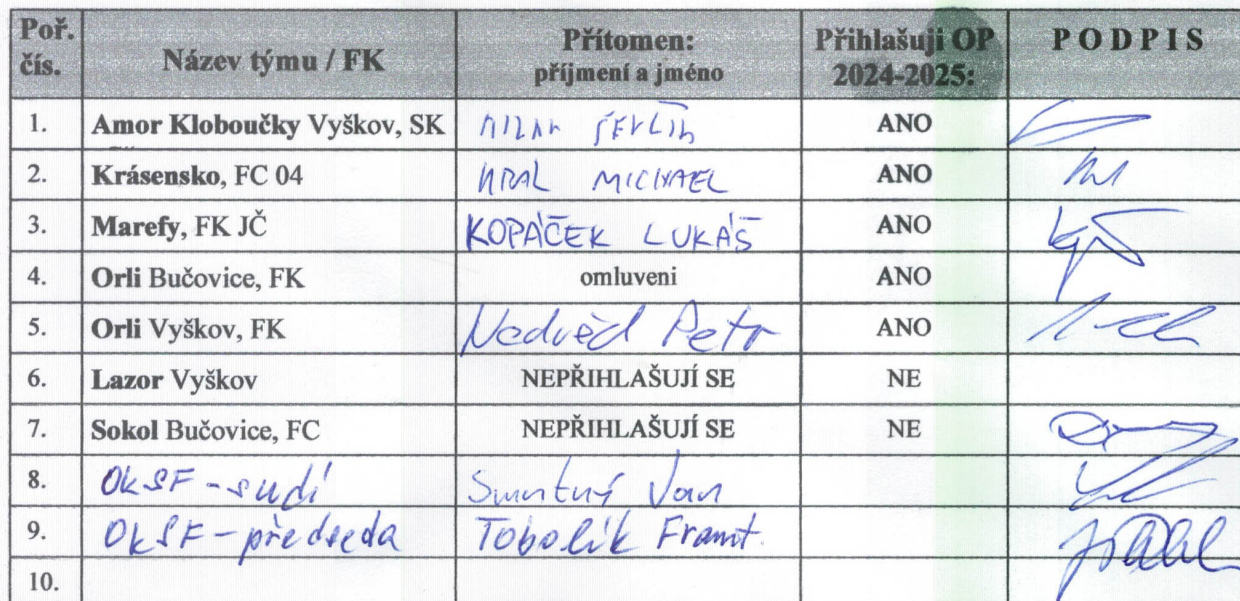 Poř. čís. Název týmu / FK Přítomen: příjmení a jméno Přihlašuji OP 2024-2025: PODPIS
1. Amor Kloboučky Vyškov, SK ANO
2. Krásensko, FC 04 KRAL MICHAEL ANO
3. Marefy, FK JČ KOPÁČEK LUKÁŠ ANO
4. Orli Bučovice, FK omluveni ANO
5. Orli Vyškov, FK Nedvěd Petr ANO
6. Lazor Vyškov NEPŘIHLAŠUJÍ SE NE
7. Sokol Bučovice, FC NEPŘIHLAŠUJÍ SE NE
8. OkSF - sudí
9. OkSF - předseda Tobolík Frant.
10.